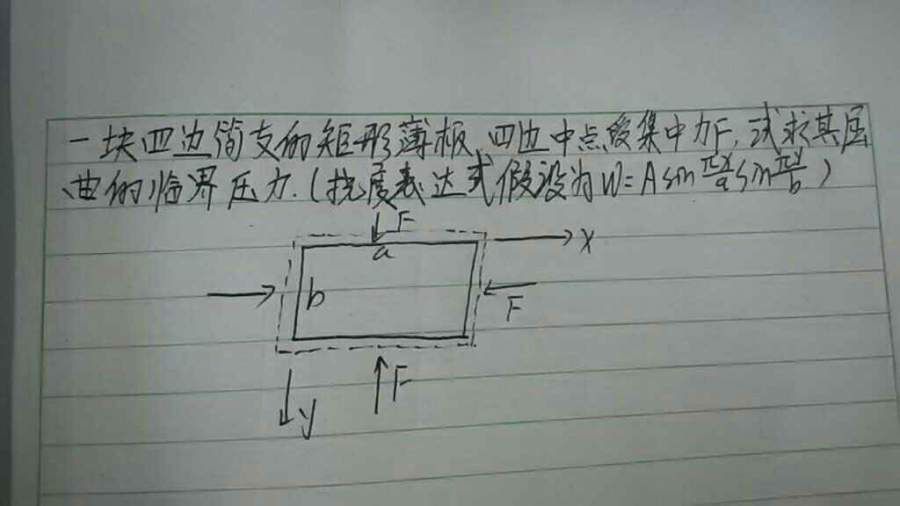 一块四边简支的矩形薄板,四边中点受集中力F,试求其屈
曲的临界压力.(挠度表达式假设为W=Asin πx/a sin πy/b)
F
a
x
b
F
F
y